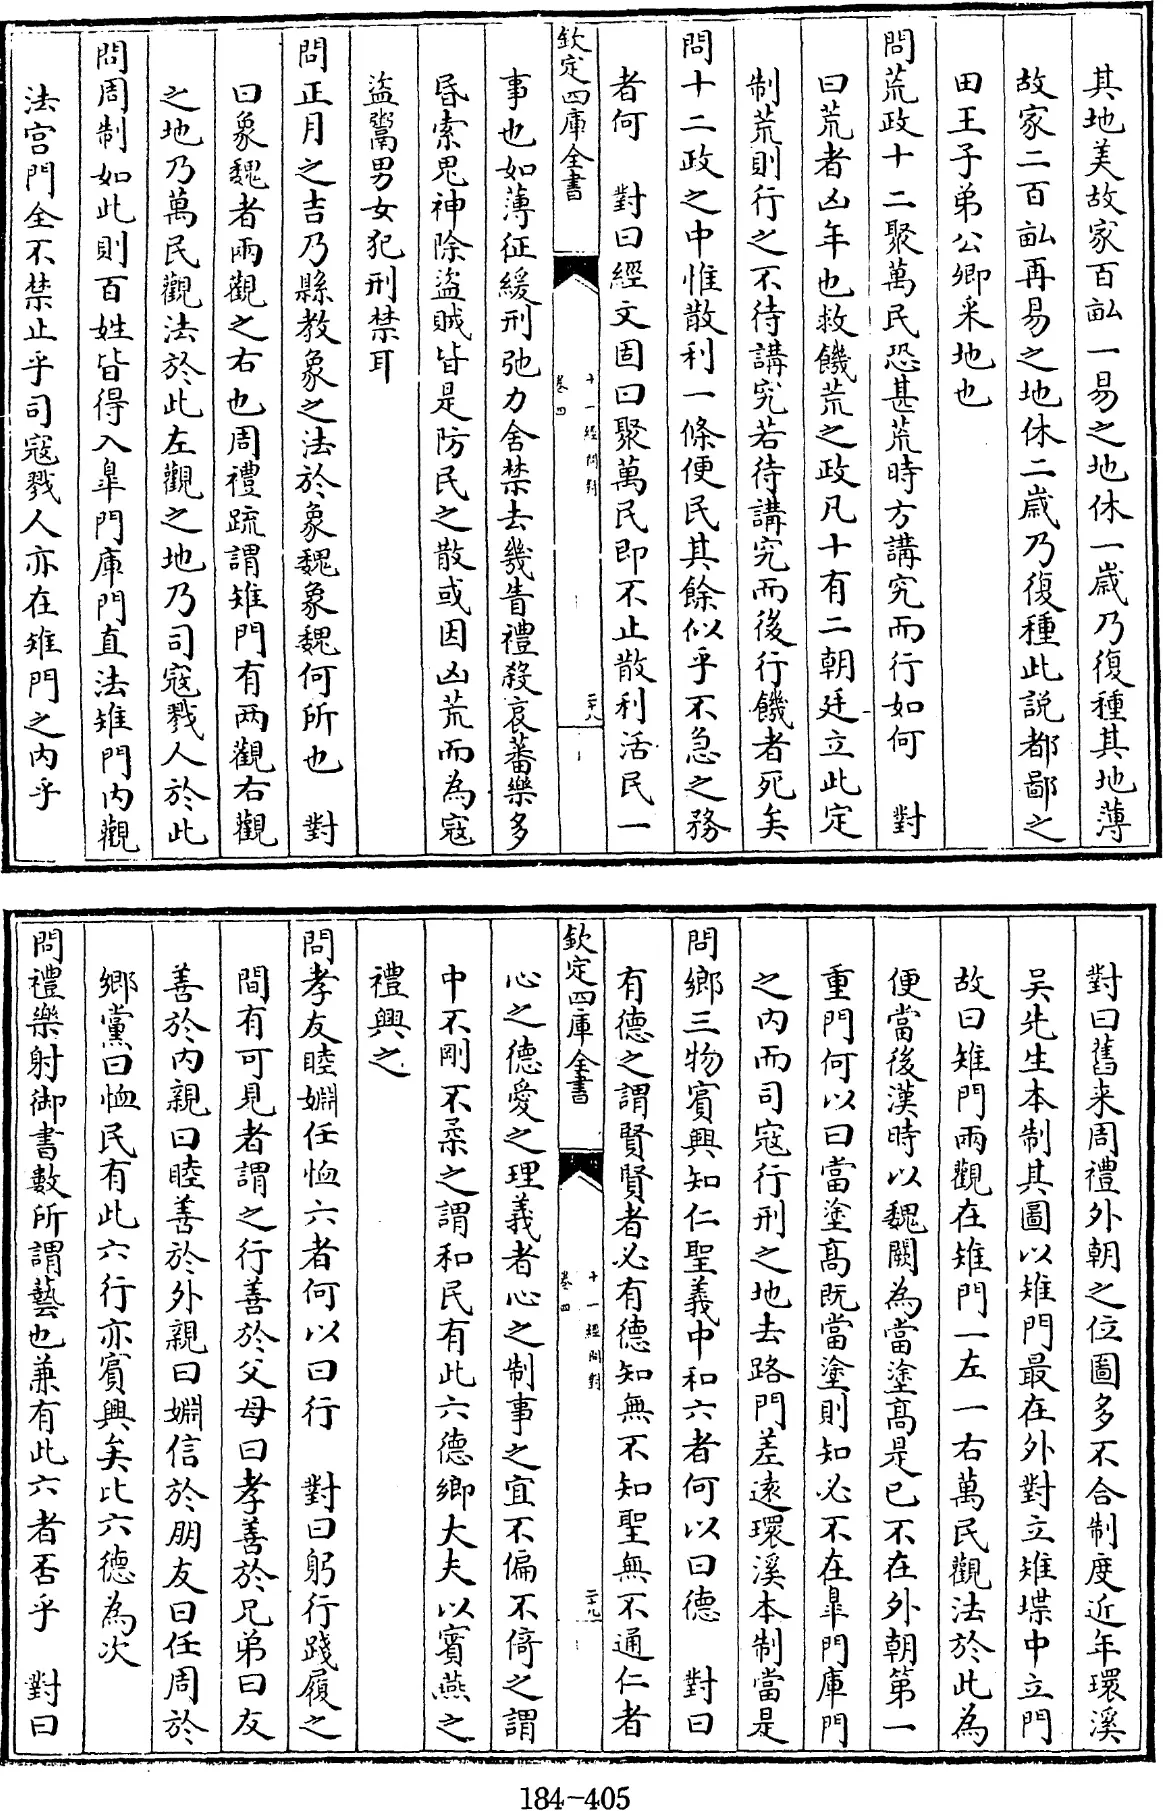 其地美故家百畝一易之地休一歲乃復種其地薄
故家二百畝再易之地休二歲乃復種此說都鄙之
田王子弟公卿采地也
問荒政十二聚萬民恐甚荒時方講究而行如何　對
曰荒者凶年也救饑荒之政凡十有二朝廷立此定
制荒則行之不待講究若待講究而後行饑者死矣
問十二政之中惟散利一條便民其餘似乎不急之務
者何　對曰經文固曰聚萬民即不止散利活民一
欽定四庫全書
十一經問對
卷四
二十八
事也如薄征緩刑弛力舍禁去幾眚禮殺哀蕃樂多
昏索鬼神除盜賊皆是防民之散或因凶荒而為寇
盜鬻男女犯刑禁耳
問正月之吉乃縣教象之法於象魏象魏何所也　對
曰象魏者兩觀之右也周禮疏謂雉門有兩觀右觀
之地乃萬民觀法於此左觀之地乃司寇戮人於此
問周制如此則百姓皆得入皐門庫門直法雉門內觀
法宫門全不禁止乎司寇戮人亦在雉門之内乎
對曰舊来周禮外朝之位圖多不合制度近年環溪
吴先生本制其圖以雉門最在外對立雉堞中立門
故曰雉門兩觀在雉門一左一右萬民觀法於此為
便當後漢時以魏闕為當塗高是已不在外朝第一
重門何以曰當塗高既當塗則知必不在臯門庫門
之内而司寇行刑之地去路門差遠環溪本制當是
問鄉三物賔興知仁聖義中和六者何以曰德　對曰
有德之謂賢賢者必有德知無不知聖無不通仁者
欽定四庫全書
十一經問對
卷四
二十九
心之德愛之理義者心之制事之宜不偏不倚之謂
中不剛不柔之謂和民有此六德鄉大夫以賓燕之
禮興之
問孝友睦婣任恤六者何以曰行　對曰躬行踐履之
間有可見者謂之行善於父母曰孝善於兄弟曰友
善於內親曰睦善於外親曰婣信於朋友曰任周於
鄉黨曰恤民有此六行亦賔興矣比六德為次
問禮樂射御書數所謂藝也兼有此六者否乎　對曰
184-405